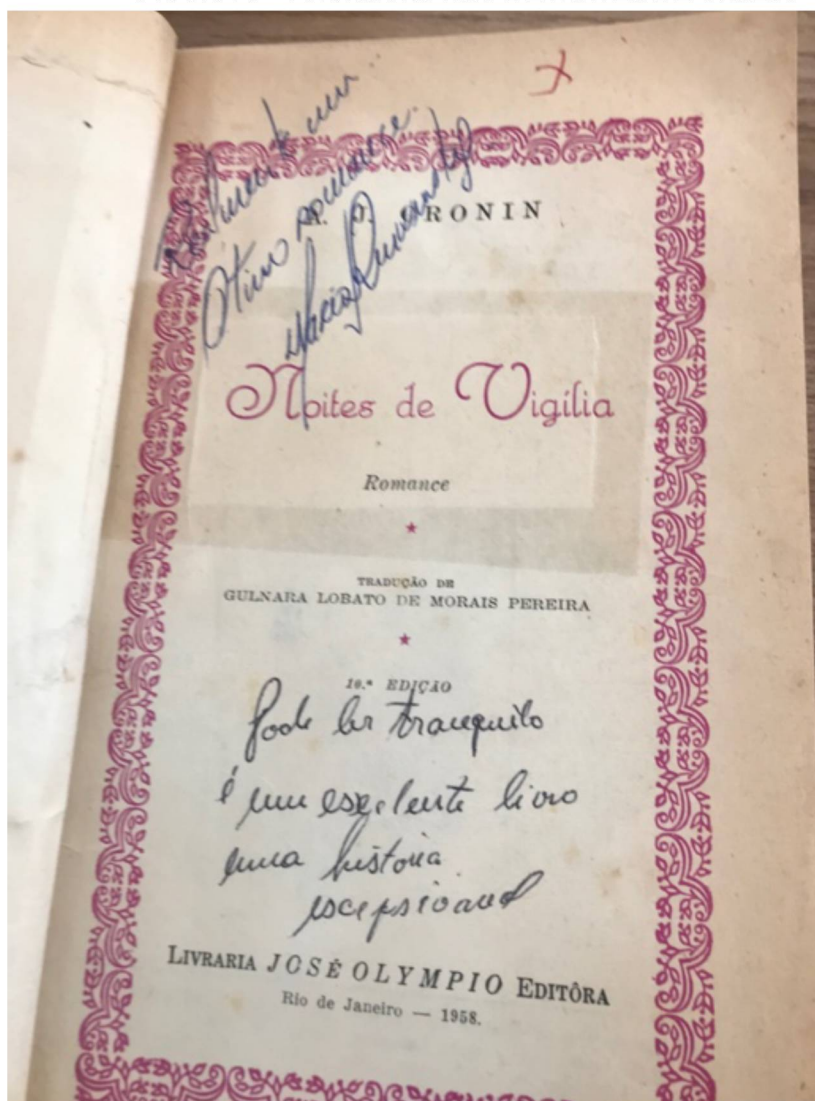 um
Otimo romance.
A. J. CRONIN
Noites de Vigília
Romance
TRADUÇÃO DE
GULNARA LOBATO DE MORAIS PEREIRA
10.ª EDIÇÃO
Pode ler tranquilo
é um escelente livro
uma história
escepsional
LIVRARIA JOSÉ OLYMPIO EDITÔRA
Rio de Janeiro — 1958.